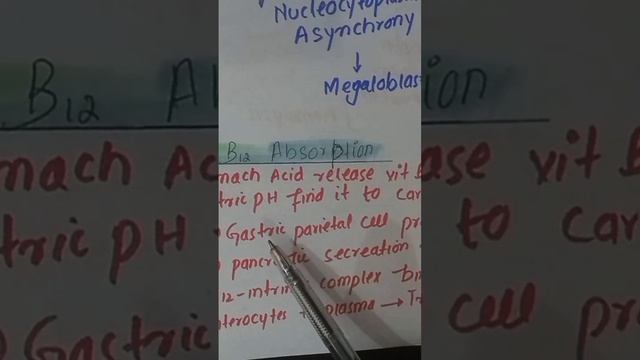 Nucleocytoplas
Asynchrony
↓
Megaloblas
B12 Absorption
mach Acid release vit B
tric pH find it to car
Gastric parietal cell pr
pancr tic secretion
12-intrin complex bin
terocytes plasma → Tr